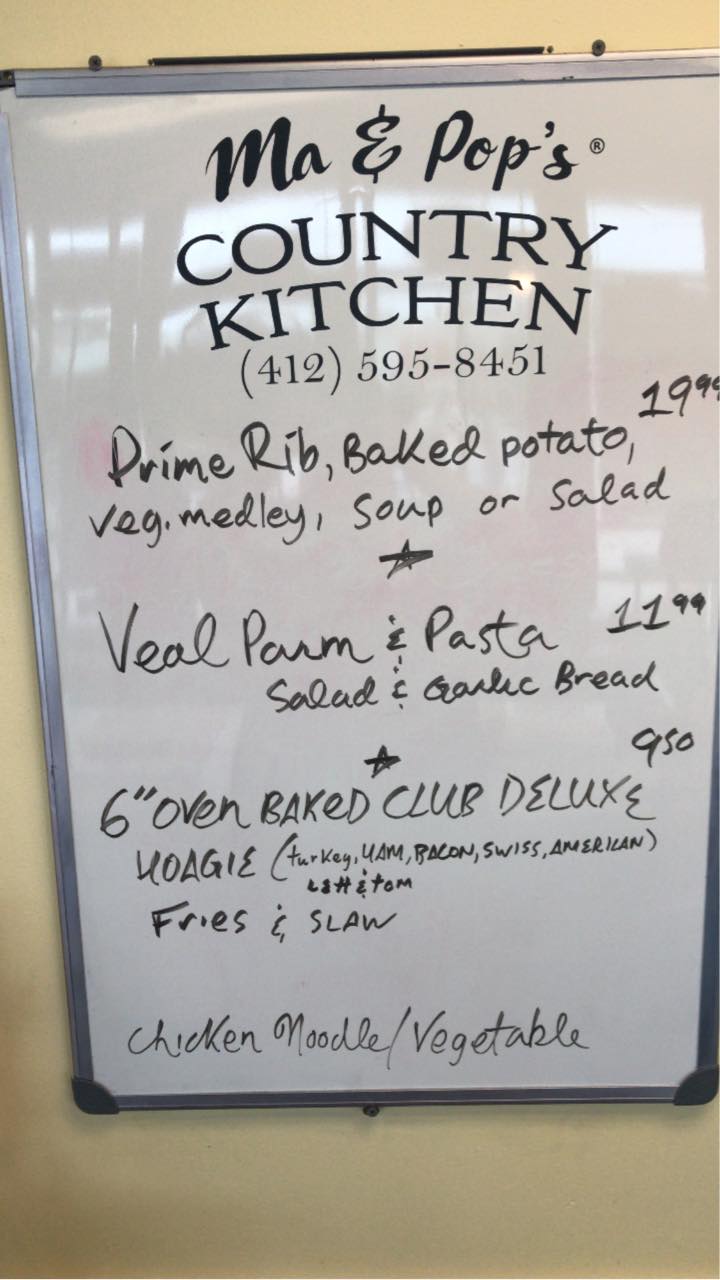 Ma & Pop's®
COUNTRY
KITCHEN
(412) 595-8451
19⁹⁹
Prime Rib, Baked potato,
veg. medley, soup or salad
Veal Parm & Pasta 11⁹⁹
Salad & Garlic Bread
950
6" oven BAKED CLUB DELUXE
HOAGIE (turkey, HAM, BACON, SWISS, AMERICAN)
Lett & tom
Fries & SLAW
Chicken Noodle/Vegetable